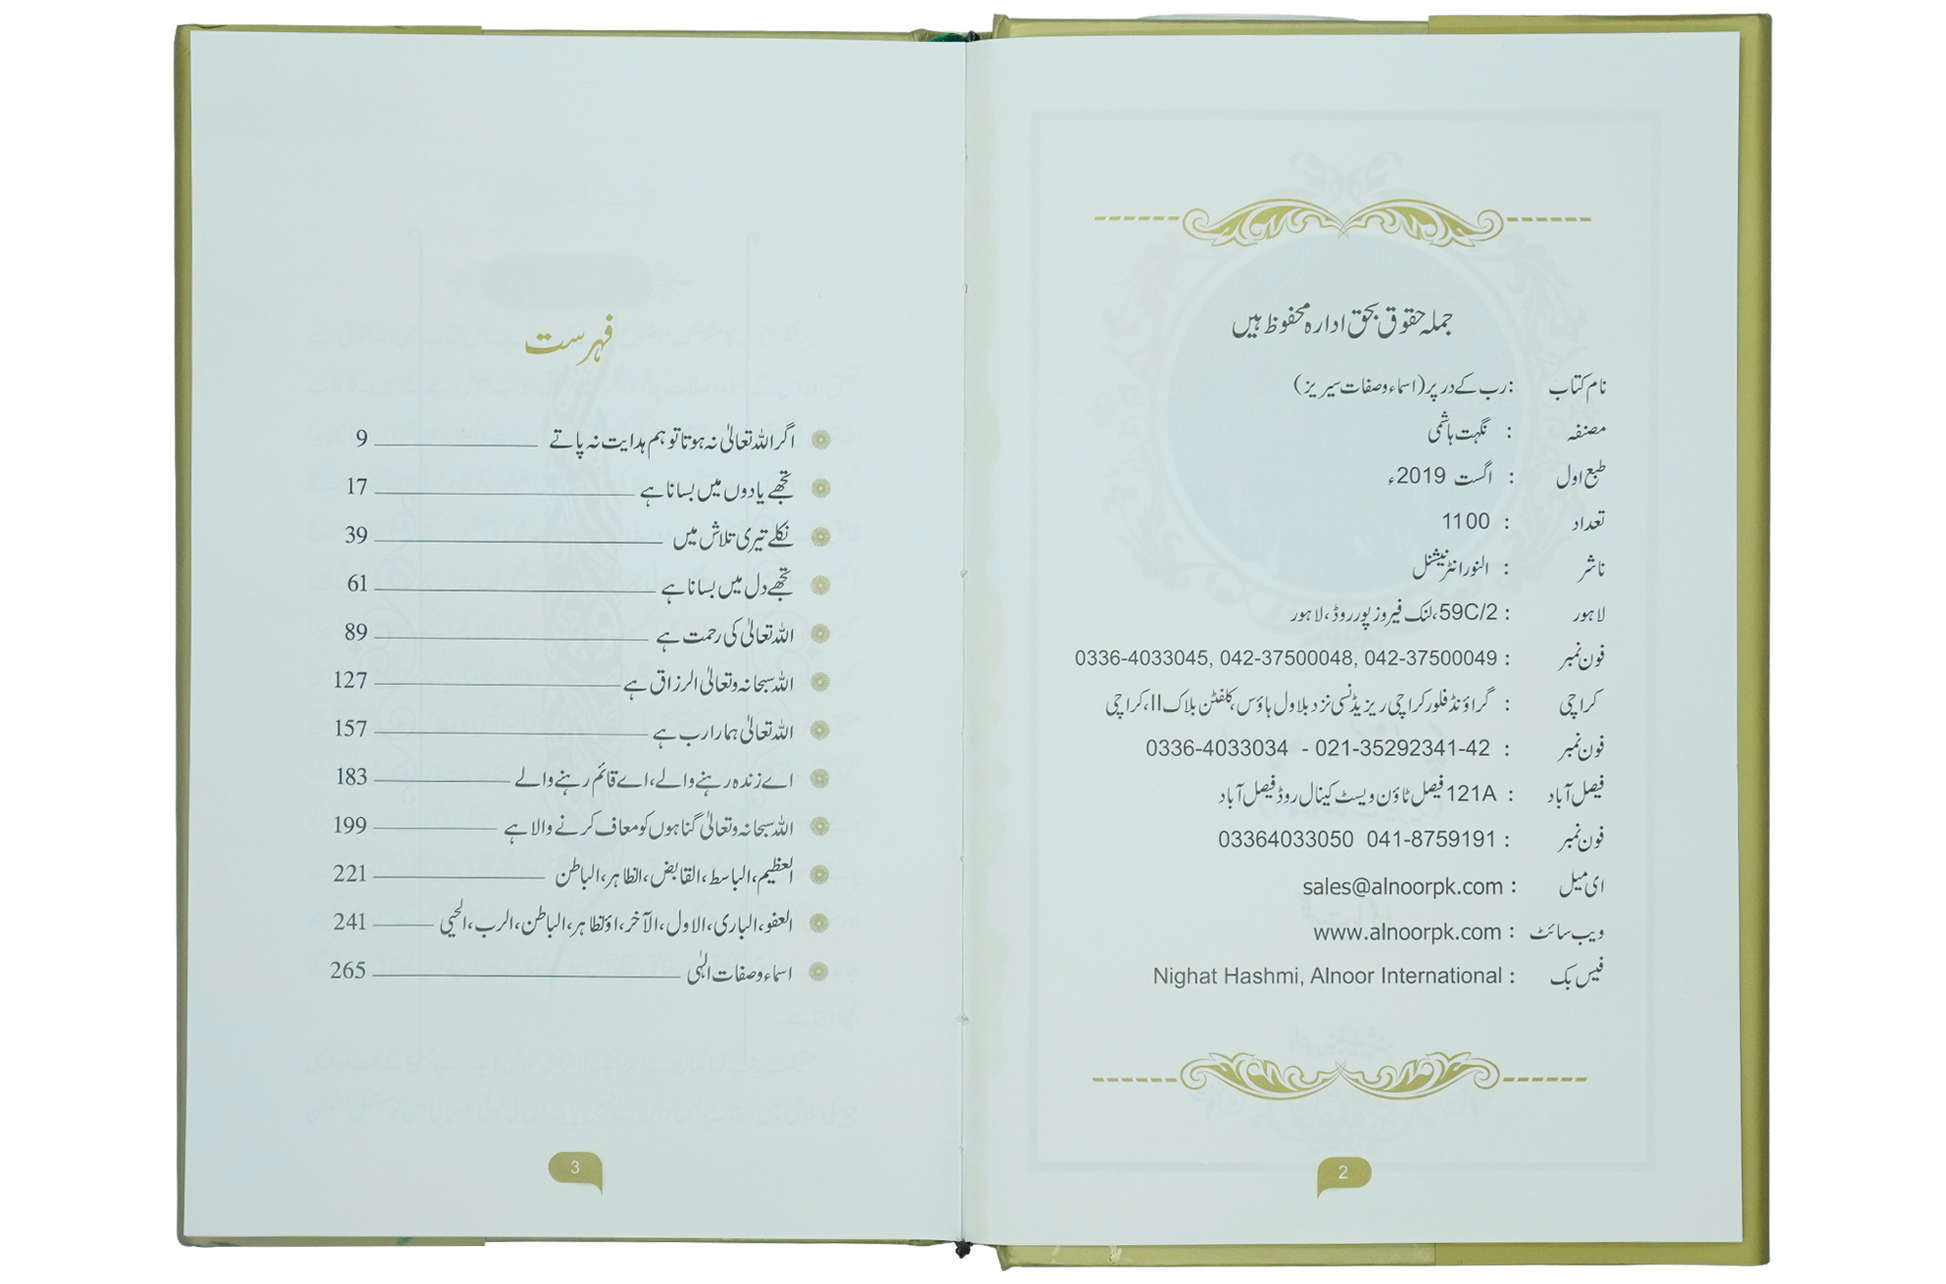 جملہ حقوق بحق ادارہ محفوظ ہیں
نام کتاب : رب کے در پر (اسماء و صفات سیریز)
مصنفہ : نگہت ہاشمی
طبع اول : اگست 2019ء
تعداد : 1100
ناشر : النور انٹرنیشنل
لاہور : 59C/2، لنک فیروز پور روڈ، لاہور
فون نمبر : 0336-4033045, 042-37500048, 042-37500049
کراچی : گراؤنڈ فلور کراچی ریزیڈنسی نزد بلاول ہاؤس، کلفٹن بلاک II، کراچی
فون نمبر : 0336-4033034 - 021-35292341-42
فیصل آباد : 121A فیصل ٹاؤن ویسٹ کینال روڈ فیصل آباد
فون نمبر : 03364033050 041-8759191
ای میل : sales@alnoorpk.com
ویب سائٹ : www.alnoorpk.com
فیس بک : Nighat Hashmi, Alnoor International
2
فہرست
اگر اللہ تعالیٰ نہ ہوتا تو ہم ہدایت نہ پاتے 9
تجھے یادوں میں بسانا ہے 17
نکلے تیری تلاش میں 39
تجھے دل میں بسانا ہے 61
اللہ تعالیٰ کی رحمت ہے 89
اللہ سبحانہ و تعالیٰ الرزاق ہے 127
اللہ تعالیٰ ہمارا رب ہے 157
اے زندہ رہنے والے، اے قائم رہنے والے 183
اللہ سبحانہ و تعالیٰ گناہوں کو معاف کرنے والا ہے 199
العظیم، الباسط، القابض، الظاہر، الباطن 221
العفو، الباری، الاول، الآخر، اؤلظاہر، الباطن، الرب، الحیی 241
اسماء و صفات الہٰی 265
3